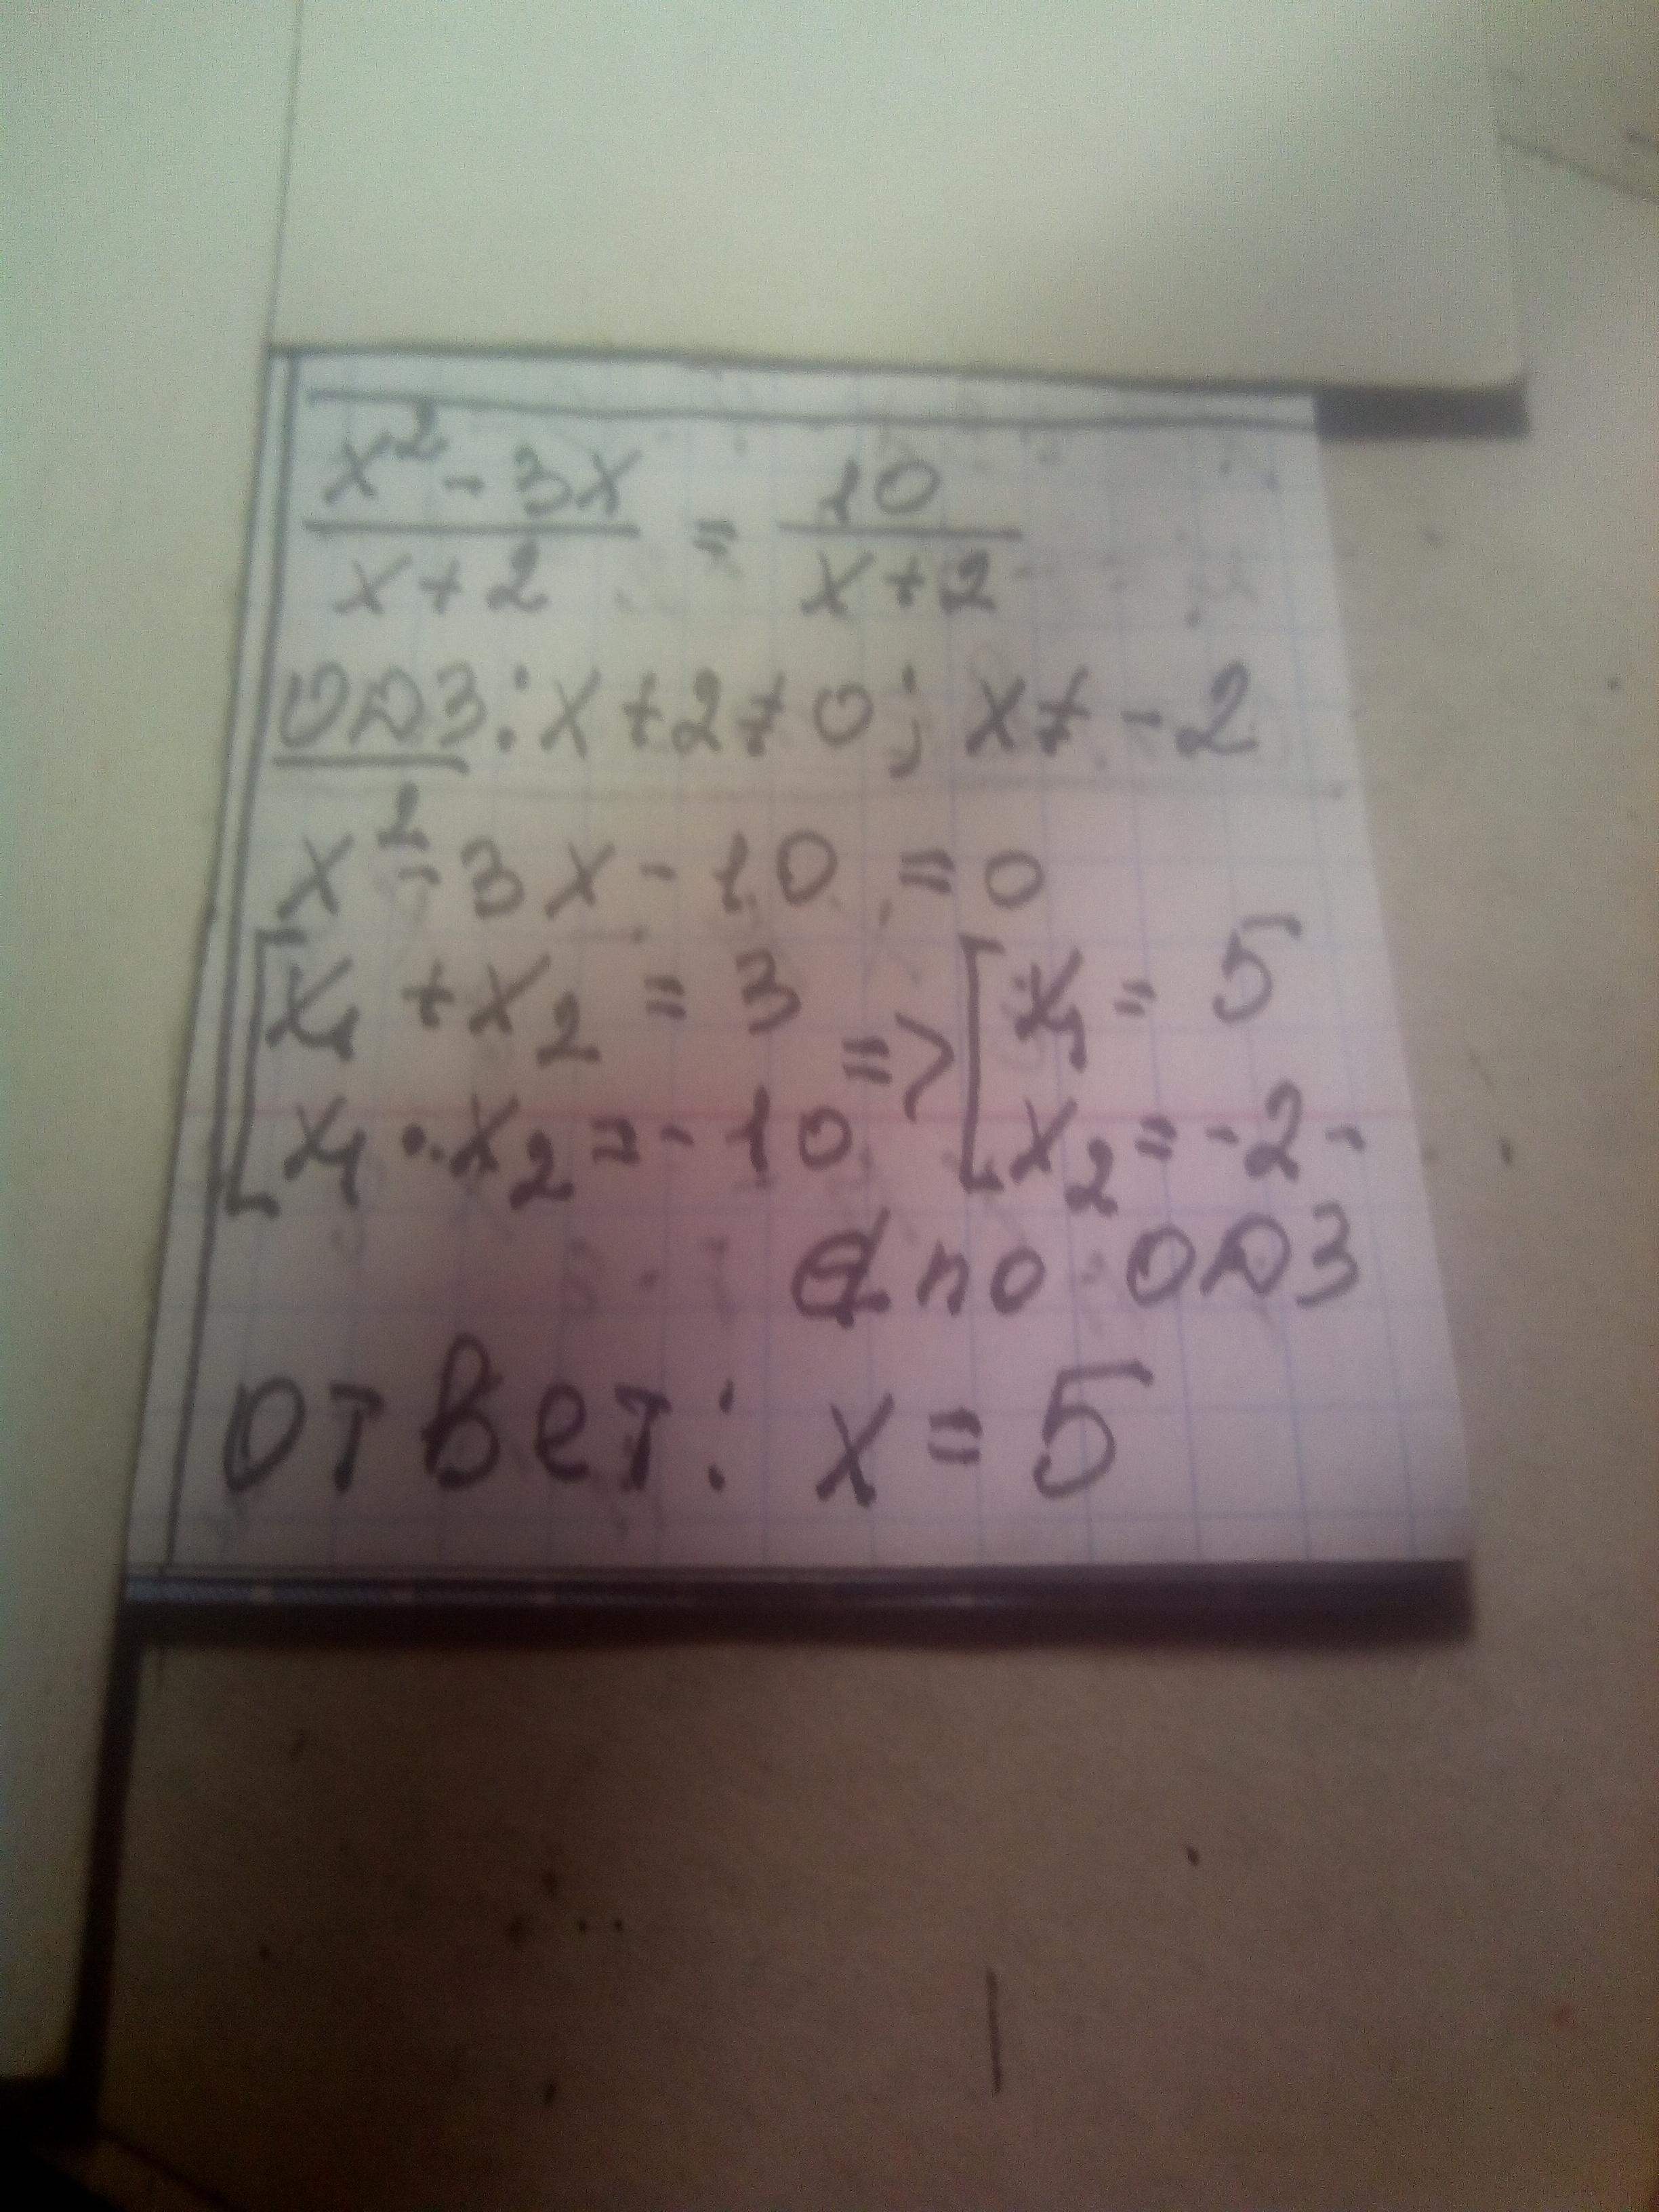 x² - 3x / x + 2 = 10 / x + 2
ОДЗ: x + 2 ≠ 0; x ≠ -2
x² - 3x - 10 = 0
[x₁ + x₂ = 3 => [x₁ = 5
[x₁ · x₂ = -10 [x₂ = -2 -
∉ по ОДЗ
ответ: x = 5